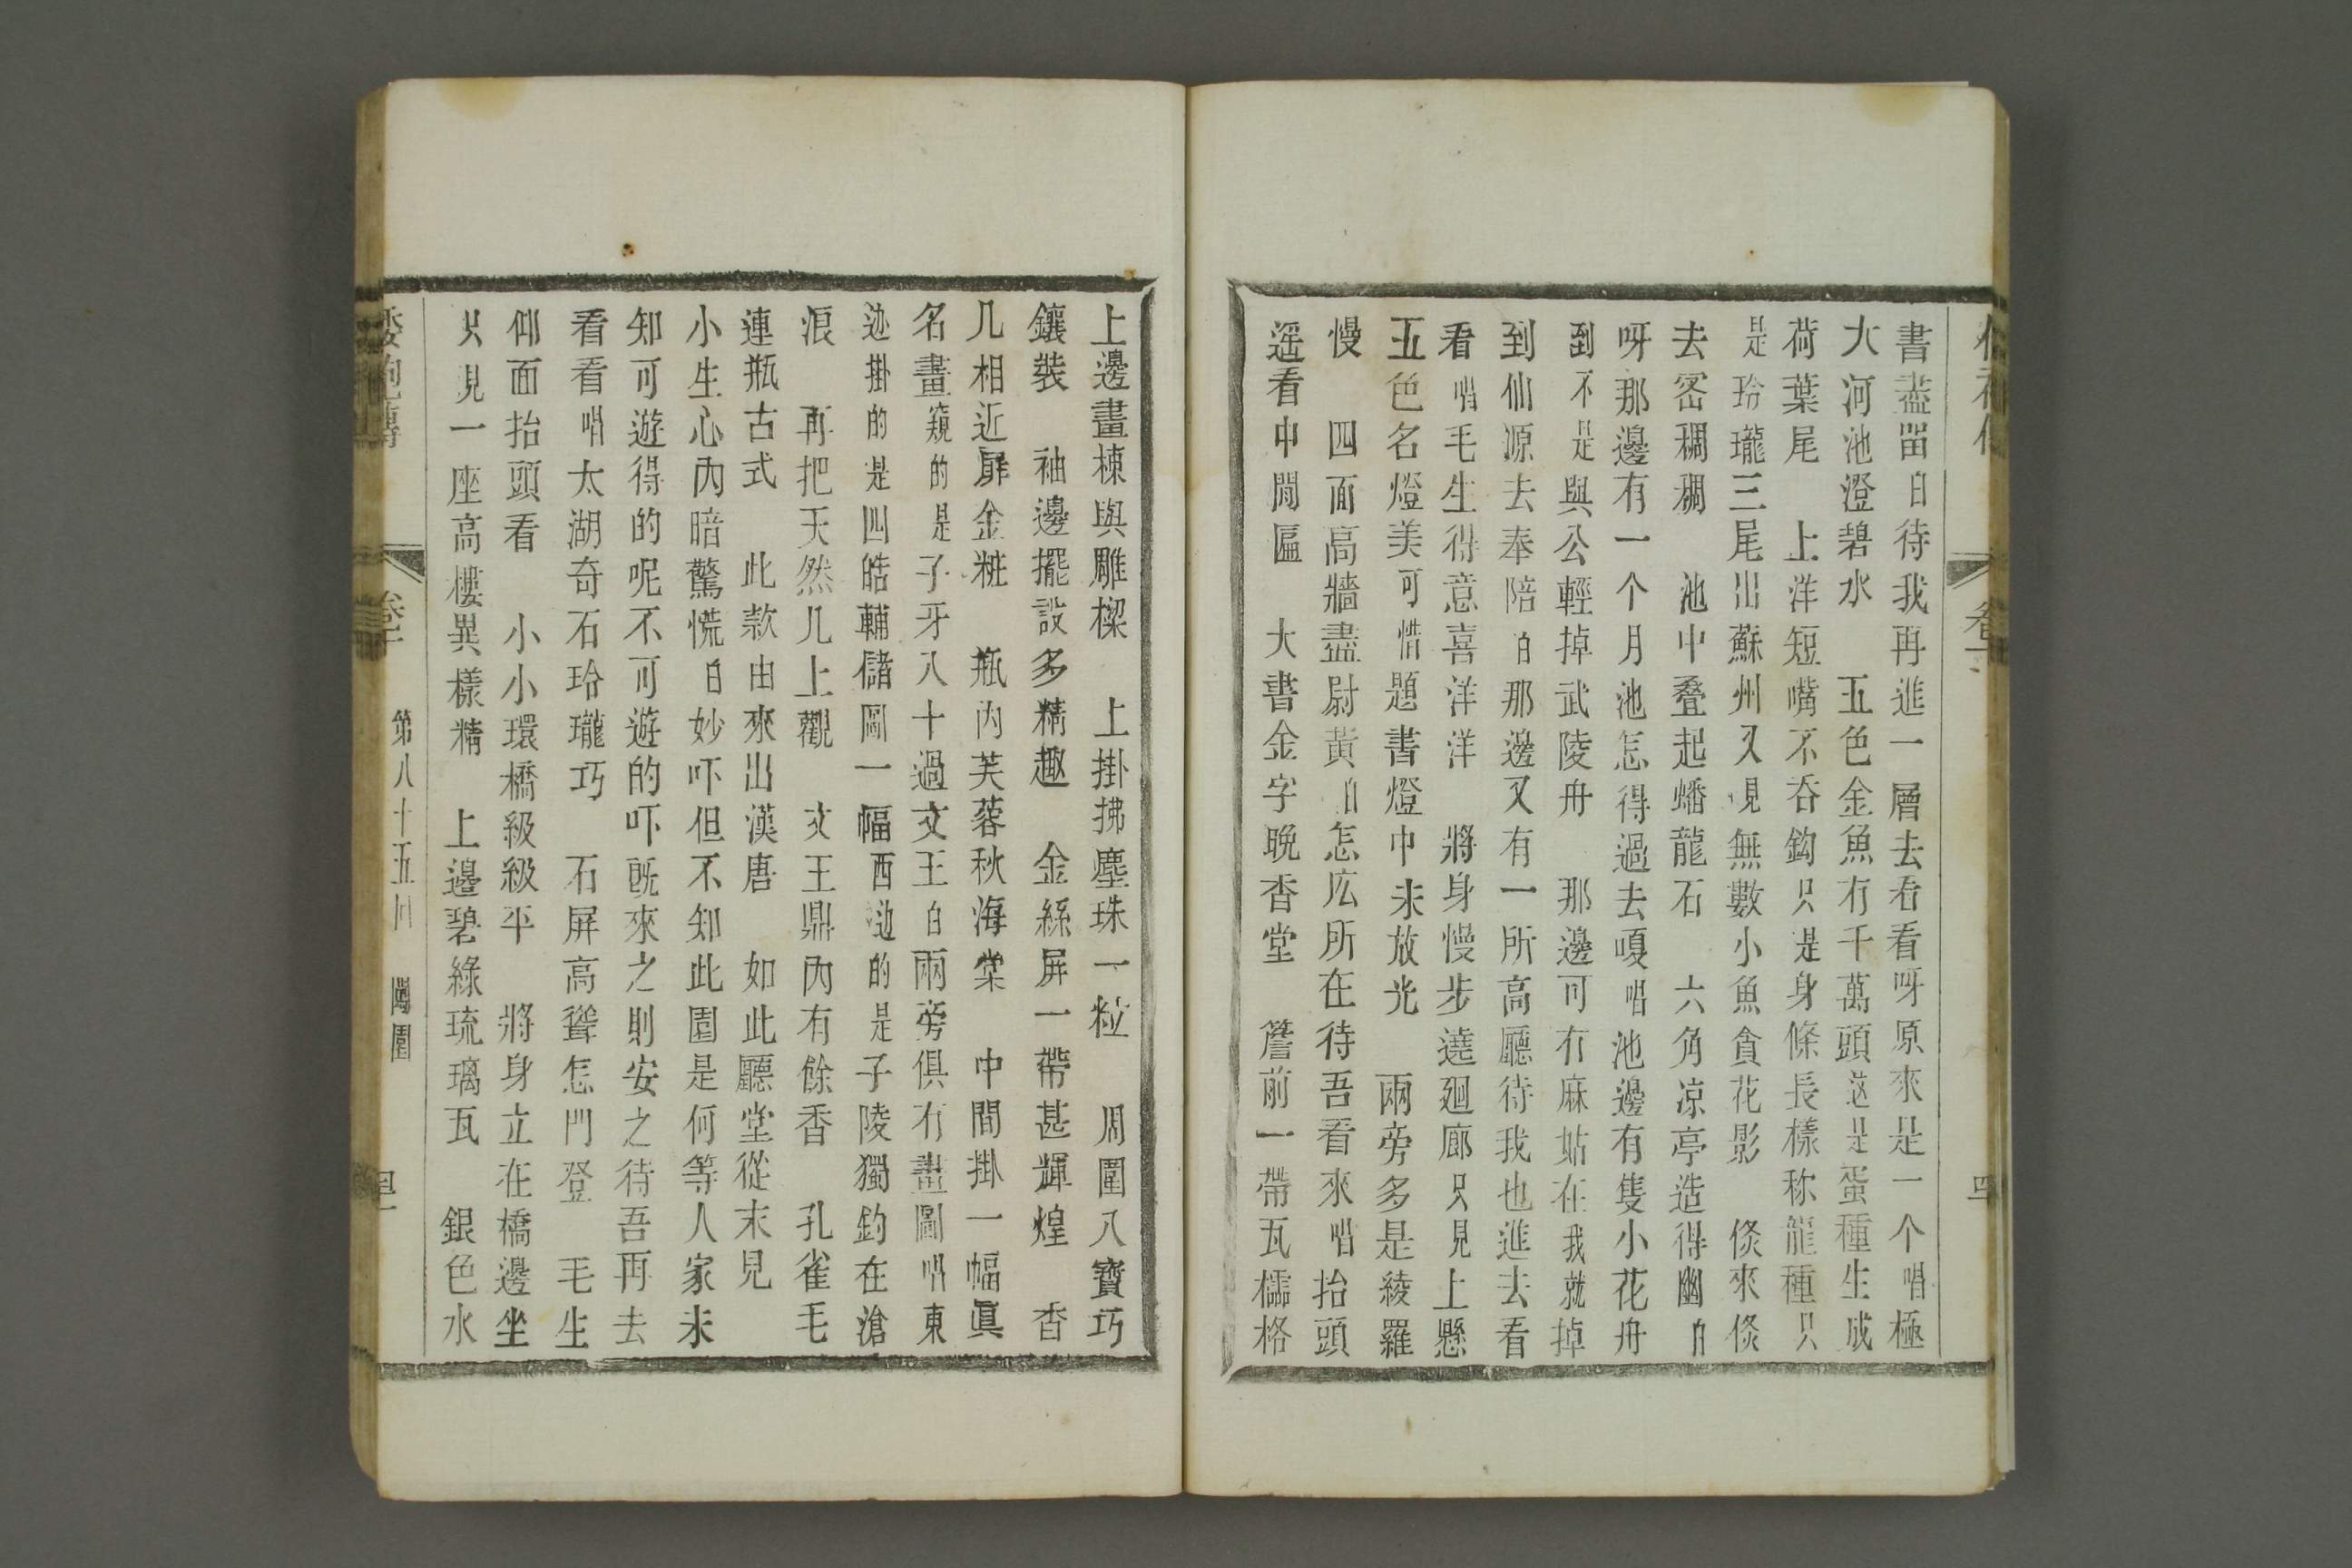 書盡畱白待我再進一層去看看呀原來是一个唱極
大河池澄碧水　五色金魚有千萬頭這是蛋種生成
荷葉尾　上洋短嘴不吞鈎只是身條長樣称龍種只
是玲瓏三尾出蘇州又見無數小魚貪花影　倐來倐
去密稠稠　池中叠起蟠龍石　六角凉亭造得幽白
呀那邊有一个月池怎得過去嗄唱池邊有隻小花舟
到不是與公輕掉武陵舟　那邊可有麻姑在我就掉
到仙源去奉陪白那邊又有一所高廳待我也進去看
看唱毛生得意喜洋洋　將身慢步遶廻廊只見上懸
五色名燈美可惜題書燈巾未放光　兩旁多是綾羅
慢　四面高牆盡尉黃白怎庅所在待吾看來唱抬頭
遥看中間匾　大書金字晚香堂　簷前一帶瓦檽格
上邊畫棟與雕樑　上掛拂塵珠一粒　周圍八寶巧
鑲裝　袖邊擺設多精趣　金絲屏一帶甚輝煌　香
几相近屏金粧　瓶内芙蓉秋海棠　中間掛一幅眞
名畫窺的是子牙八十過文王白兩旁俱有畫圖唱東
迯掛的是四皓輔儲圖一幅西迯的是子陵獨釣在滄
浪　再把天然几上觀　文王鼎内有餘香　孔雀毛
連瓶古式　此款由來出漢唐　如此廳堂從末見
小生心内暗驚慌白妙吓但不知此園是何等人家未
知可遊得的呢不可遊的吓旣來之則安之待吾再去
看看唱太湖奇石玲瓏巧　石屏高聳怎門登　毛生
仰面抬頭看　小小環橋級級平　將身立在橋邊坐
只見一座高樓異樣精　上邊碧綠琉璃瓦　銀色水
第八十五回　鬧園